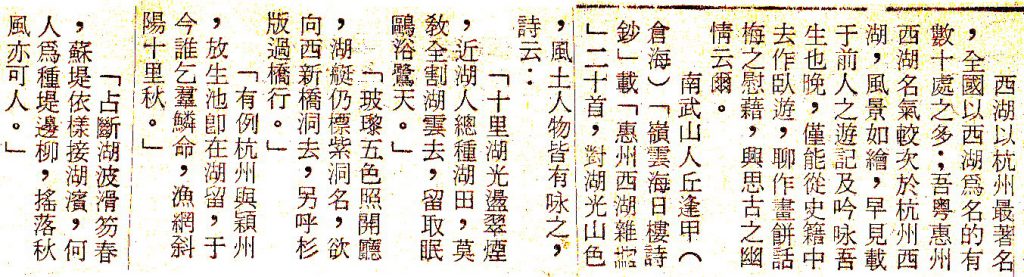 西湖以杭州最著名
，全國以西湖爲名的有
數十處之多；吾粤惠州
西湖名氣較次於杭州西
湖，風景如繪，早見載
于前人之遊記及吟咏吾
生也晚，僅能從史籍中
去作臥遊，聊作畫餅話
梅之慰藉，與思古之幽
情云爾。
南武山人丘逢甲（
倉海）「嶺雲海日樓詩
鈔」載「惠州西湖雜詠
」二十首，對湖光山色
，風土人物皆有咏之，
詩云：
「十里湖光盪翠煙
，近湖人總種湖田，莫
教全割湖雲去，留取眠
鷗浴鷺天。」
「玻瓈五色照開廳
，湖艇仍標紫洞名，欲
向西新橋洞去，另呼杉
版過橋行。」
「有例杭州與潁州
，放生池卽在湖留，于
今誰乞羣鱗命，漁網斜
陽十里秋。」
「占斷湖波滑笏春
，蘇堤依樣接湖濱，何
人爲種堤邊柳，搖落秋
風亦可人。」